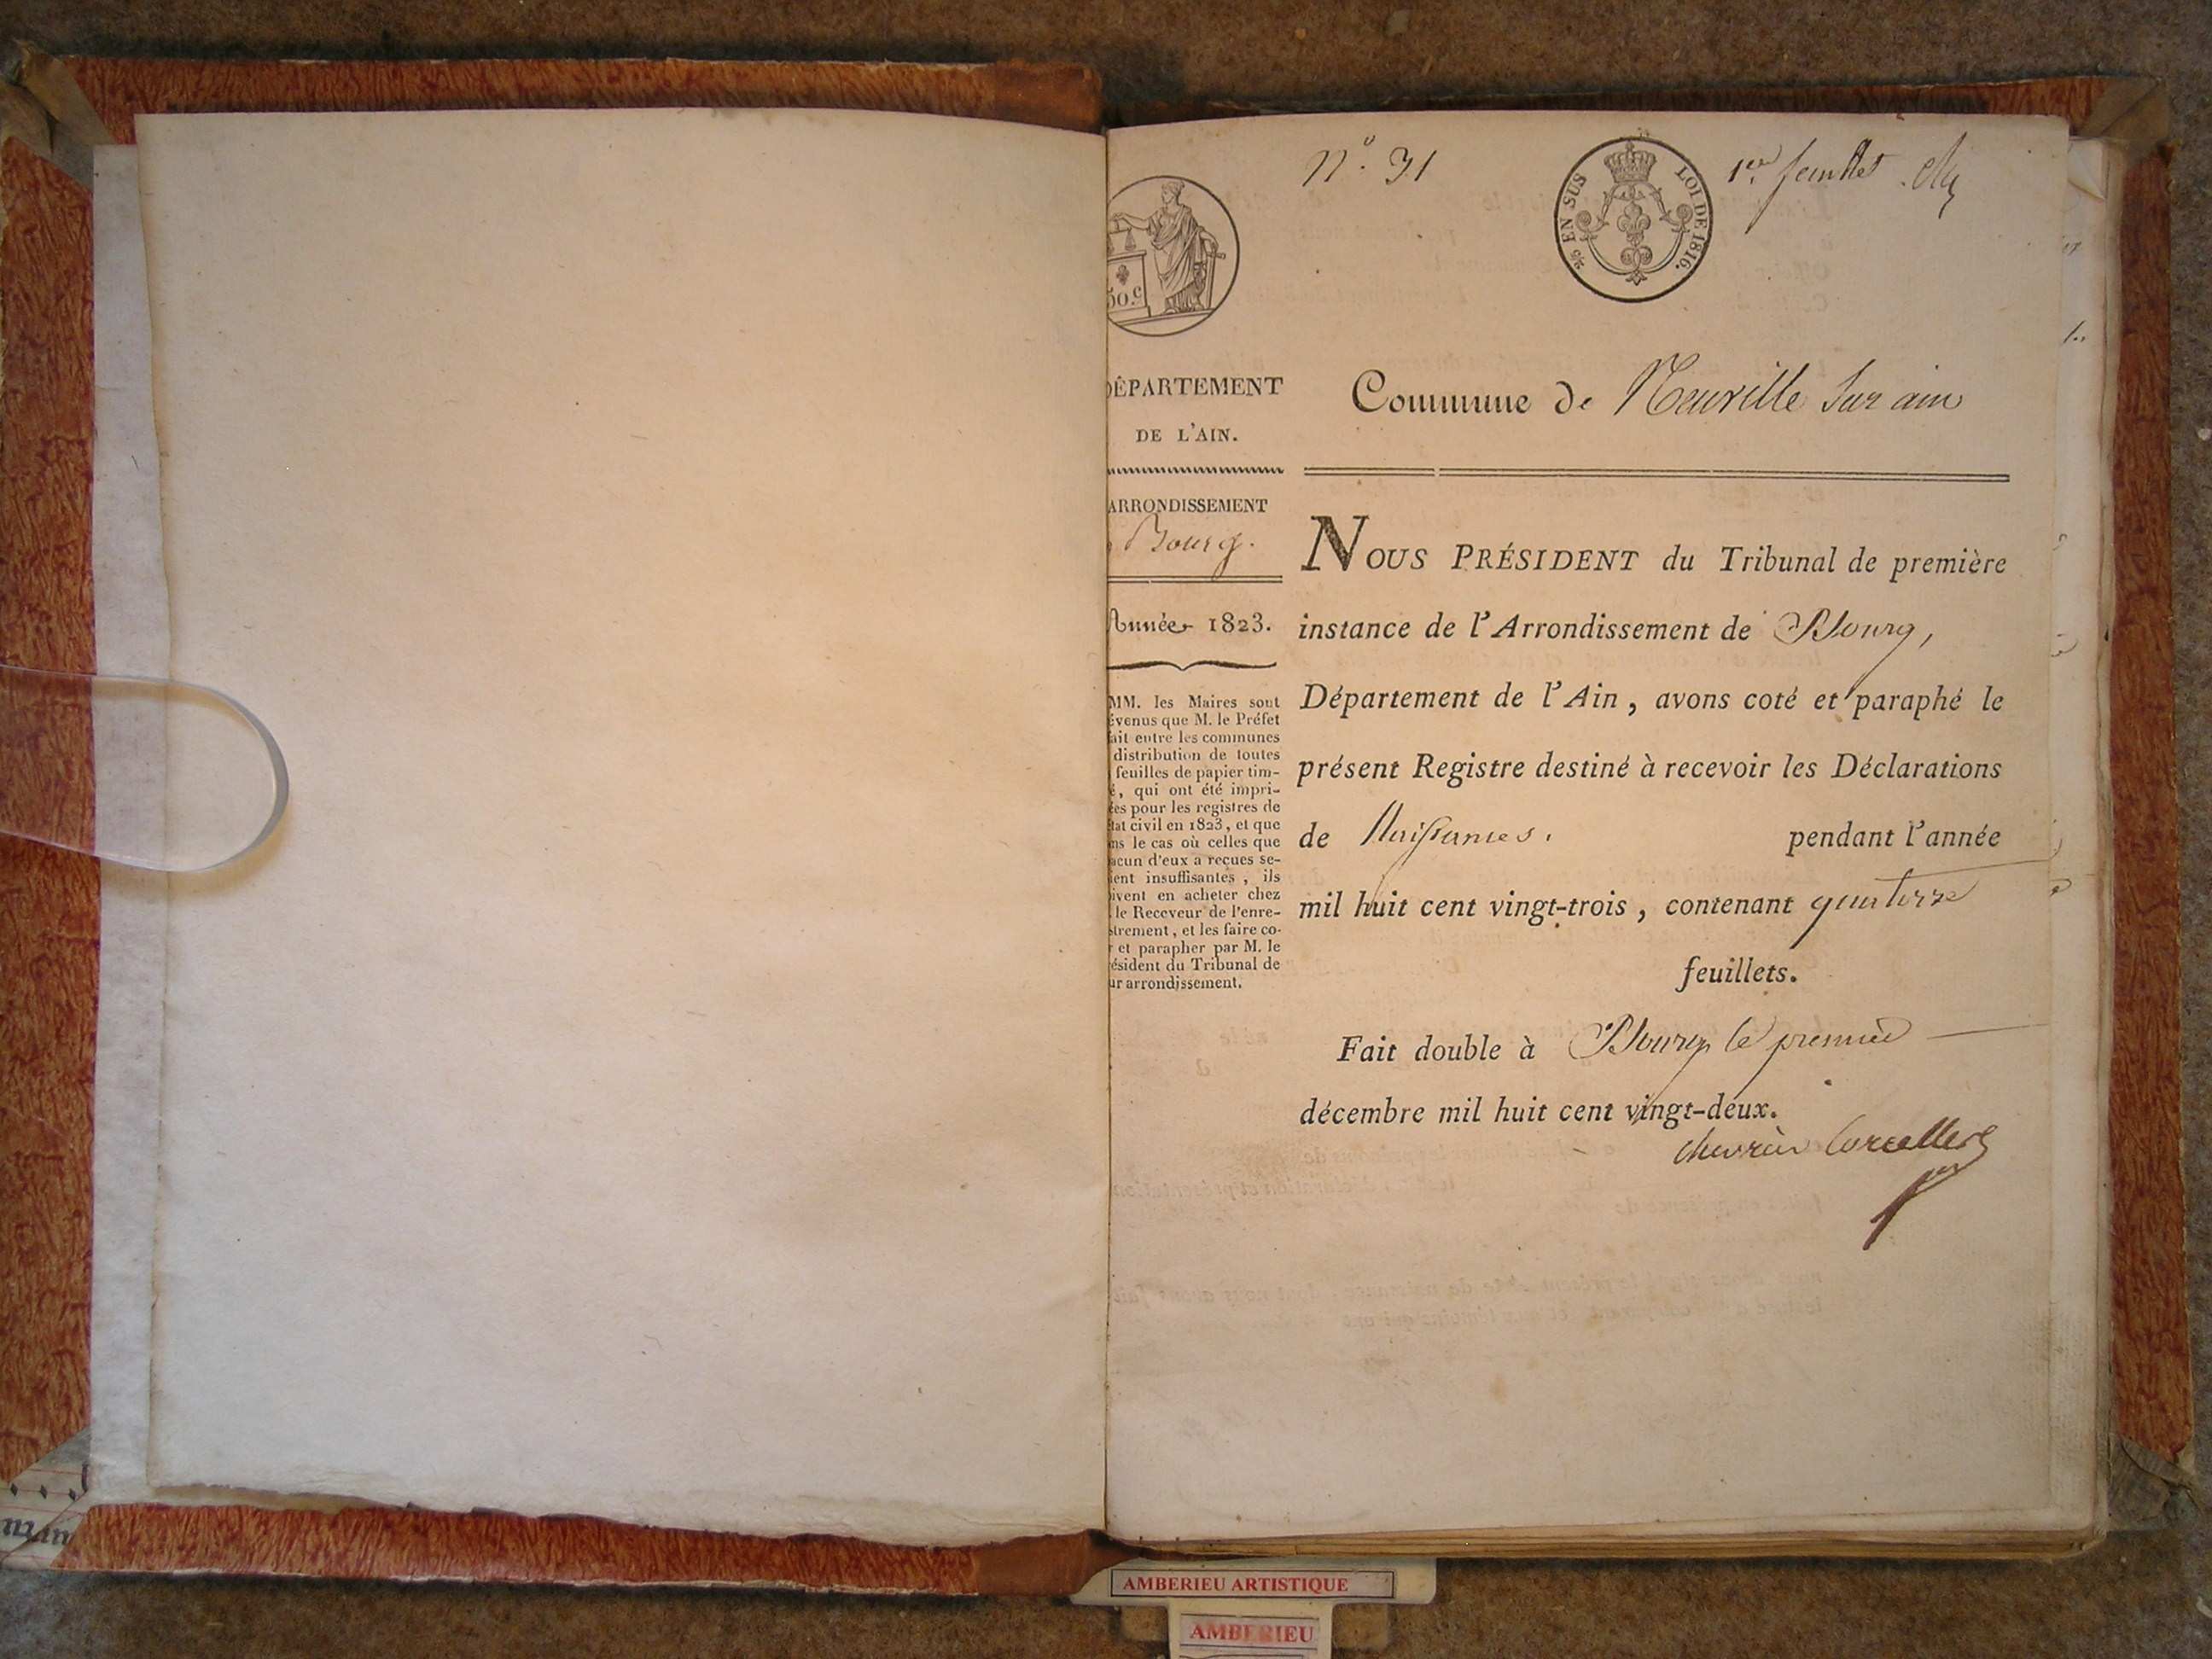 N.º 31
25 EN SUS LOI DE 1816.
1er feuillet
50.c
DÉPARTEMENT
DE L'AIN.
Commune de Neuville Sur ain
ARRONDISSEMENT
Bourg.
Année 1823.
MM. les Maires sont
évenus que M. le Préfet
ait entre les communes
distribution de toutes
feuilles de papier tim-
é, qui ont été impri-
ées pour les registres de
état civil en 1823, et que
ns le cas où celles que
acun d'eux a reçues se-
ient insuffisantes, ils
ivent en acheter chez
le Receveur de l'enre-
strement, et les faire co-
r et parapher par M. le
ésident du Tribunal de
ur arrondissement.
NOUS PRÉSIDENT du Tribunal de première
instance de l'Arrondissement de Bourg,
Département de l'Ain, avons coté et paraphé le
présent Registre destiné à recevoir les Déclarations
de Naissances. pendant l'année
mil huit cent vingt-trois, contenant quatorze
feuillets.
Fait double à Bourg le premier
décembre mil huit cent vingt-deux.
Chevrier Corcelles
AMBERIEU ARTISTIQUE
AMBERIEU